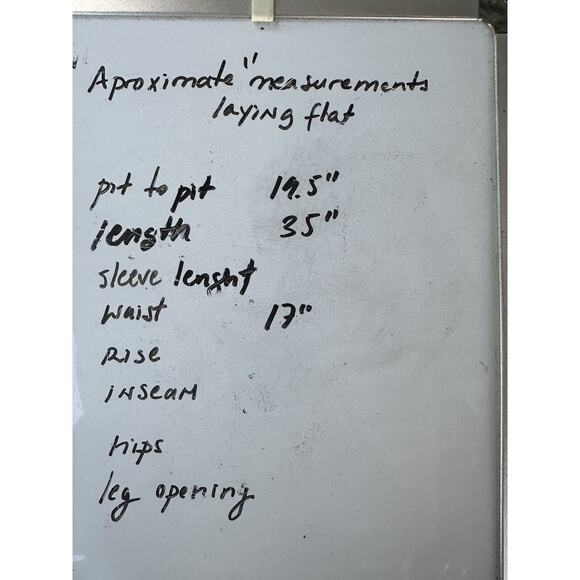 Aproximate" measurements
laying flat
pit to pit 19.5"
length 35"
sleeve lenght
waist 17"
Rise
inseam
hips
leg opening